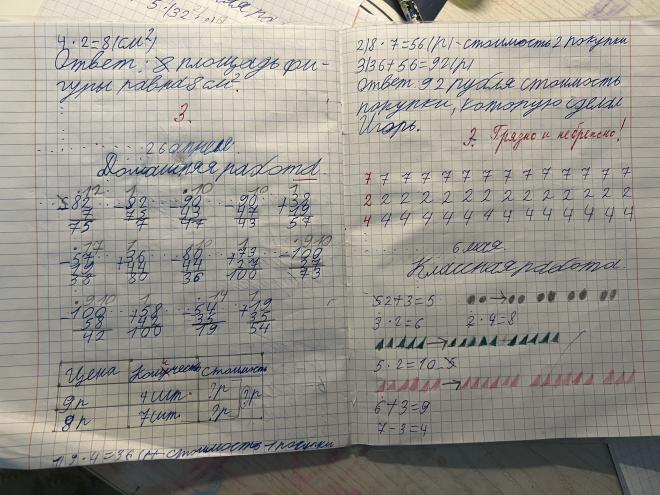 4 · 2 = 8 (см²)
Ответ: 8 площадь фи-
гуры равна 8 см².
3.
26 апреля.
Домашняя работа.
12 1 10 10 1
-82 -82 -90 -90 +38
7 75 43 47 19
75 7 47 43 57
17 1 10 1 9 10
-57 +36 -80 +73 -100
19 44 44 27 27
38 80 36 100 73
9 10 1 14 1
-100 +58 -54 +19
58 42 35 35
42 100 19 54
Цена Количество Стоимость
9 р 4 шт. ?р ?р
8 р 7 шт. ?р
1) 9 · 4 = 36 (р) - стоимость 1 покупки
2) 8 · 7 = 56 (р) - стоимость 2 покупки
3) 36 + 56 = 92 (р)
Ответ: 92 рубля стоимость
покупки, которую сделал
Игорь.
3. Грязно и небрежно!
7 7 7 7 7 7 7 7 7 7 7 7 7 7
2 2 2 2 2 2 2 2 2 2 2 2 2 2
4 4 4 4 4 4 4 4 4 4 4 4 4 4
6 мая.
Классная работа.
2+3=5
3 · 2=6 2 · 4=8
5 · 2=10
6+3=9
7-3=4